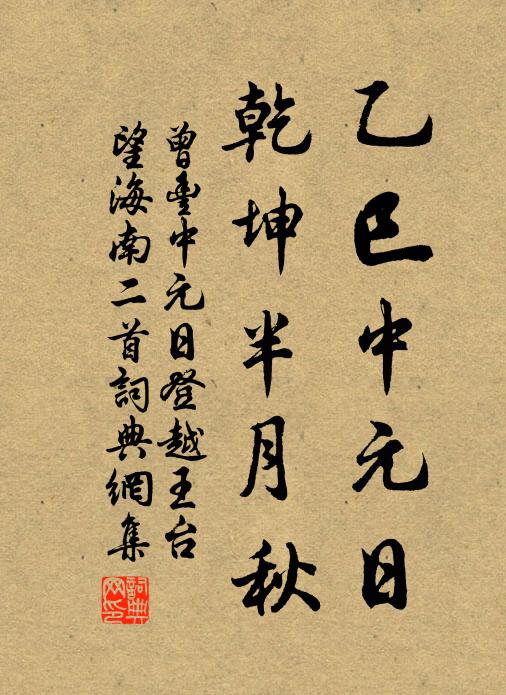 乙巳中元日
乾坤半月秋
曾豊中元日登越王台
望海南二首詞典網集
詞典网印